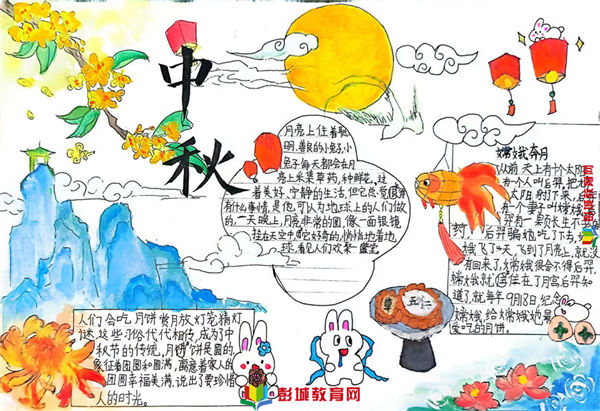 中
秋
月亮上住着聪
明、善良的小兔子,小
兔子每天都会在月
亮上采集草药,种鲜花,过
着美好、宁静的生活,但它总觉得
有什么事情,是他可以为地球上的人们做
的,一天晚上,月亮非常的圆,像一面银镜
挂在天空中,它好奇的,悄悄地看地
球,看见人们欢聚一堂
嫦娥奔月
以前天上有十个太阳
有一个人叫后羿,把
太阳射下来,后羿
有一个妻子叫嫦娥
羿有一颗长生不
药,后羿骗她吃了下去,
娥飞了天,飞到了月亮上,就没
有回来了,嫦娥很舍不得后羿,
嫦娥就住在了月宫后羿知
道了,就每年9月18日,纪念
嫦娥,给嫦娥她最
爱吃的月饼。
五仁
人们会吃月饼赏月放灯笼猜灯
谜,这些习俗代代相传,成为了中
秋节的传统,月饼是圆的
象征着团圆和圆满,寓意着家人的
团圆幸福美满,说出了要珍惜
人的时光。
彭城教育网